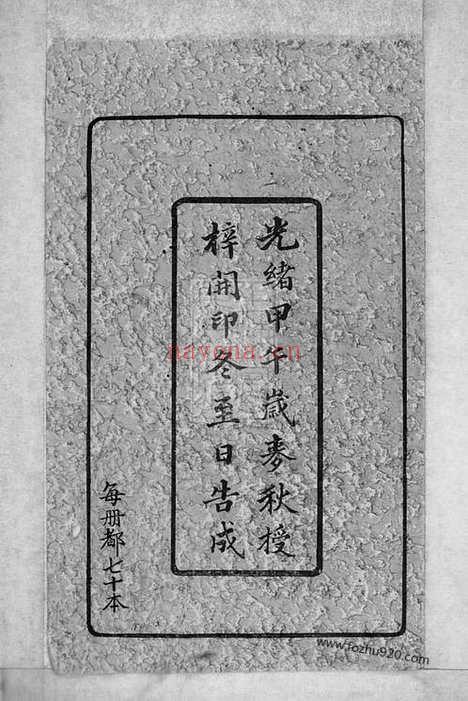 光緒甲午歲麥秋授
梓開印冬至日告成
每册都七十本
nayona.cn
www.fozhu920.com